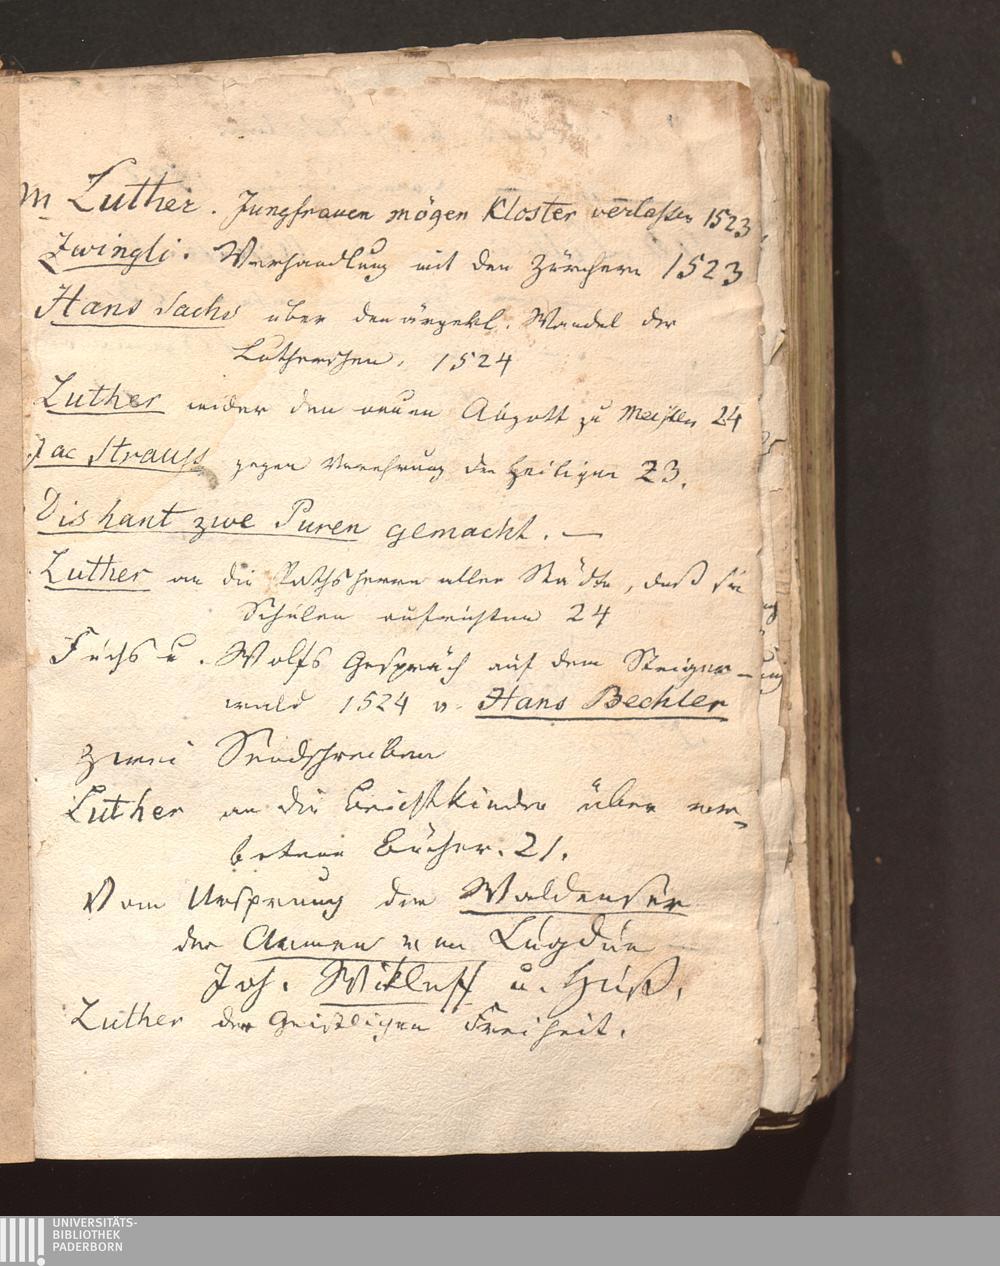 M Luther. Jungfrauen mögen Kloster verlaßen 1523.
Zwingli. Verhandlung mit den Zürchern 1523
Hans Sachs über den ärgerl. Wandel der
Lutherschen. 1524
Luther wider den neuen Abgott zu Meißen 24
Jac Strauss gegen Verehrung der Heiligen 23.
Dis hant zwe Puren gemacht. —
Luther an die Rathsherren aller Städte, daß sie
Schulen aufrichten 24
Fuchs u. Wolfs Gespräch auf dem Steiger-
wald 1524 v. Hans Bechler
Zwei Sendschreiben
Luther an die Beichtkinder über ver-
botene Bücher. 21.
Vom Ursprung der Waldenser
der Armen von Lugdun
Joh. Wikleff u. Huß.
Luther der Geistlichen Freiheit.
UNIVERSITÄTS-
BIBLIOTHEK
PADERBORN